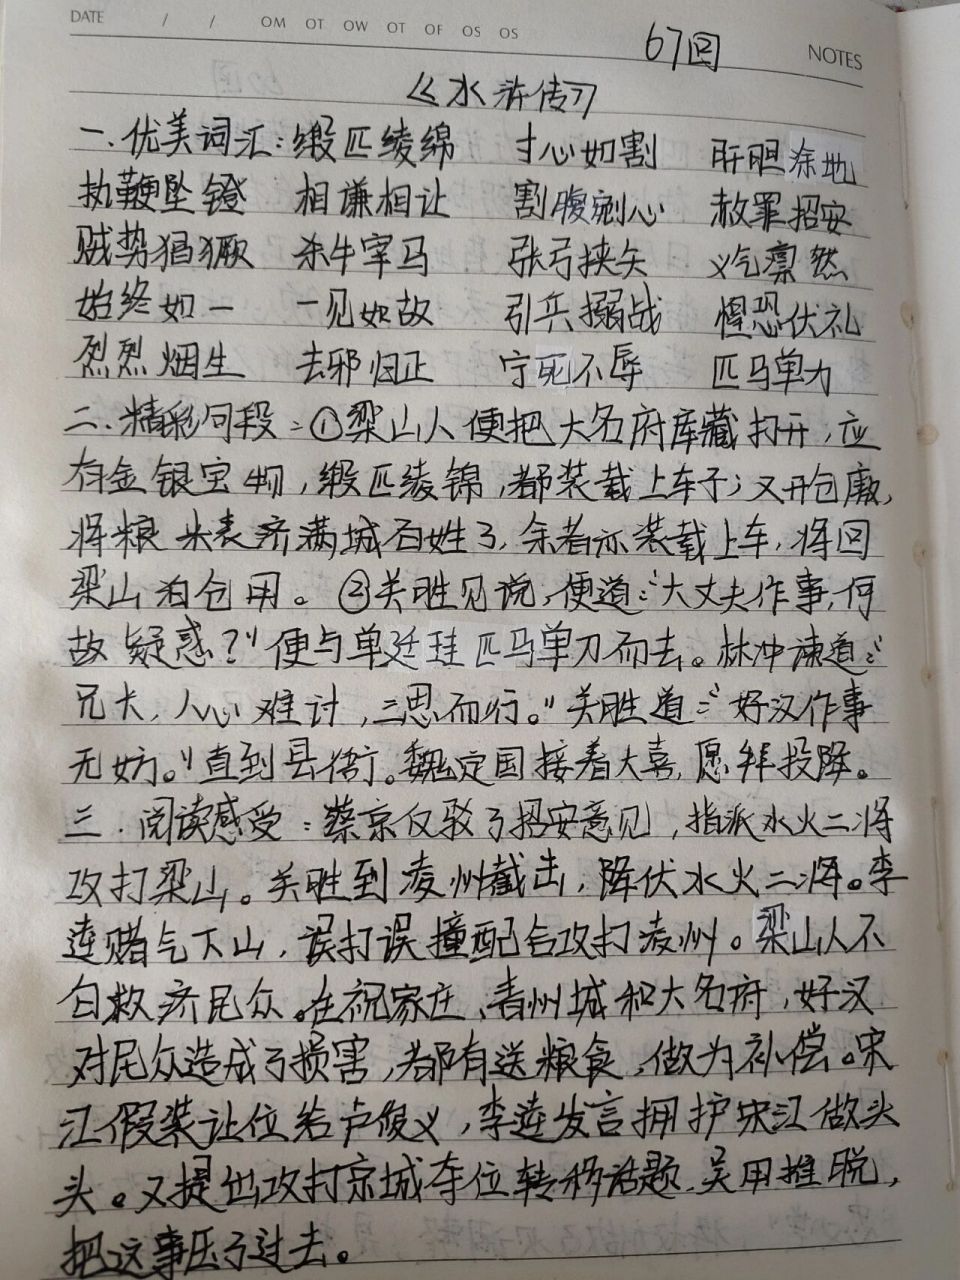 DATE / / OM OT OW OT OF OS OS 67回 NOTES
《水浒传》
一.优美词汇:缎匹绫绵 寸心如割 肝胆涂地
执鞭坠镫 相谦相让 割腹剜心 赦罪招安
贼势猖獗 杀牛宰马 张弓挟矢 义气凛然
始终如一 一见如故 引兵搦战 惶恐伏礼
烈烈烟生 去邪归正 宁死不辱 匹马单刀
二.精彩句段:①梁山人便把大名府库藏打开,应
有金银宝物,缎匹绫锦,都装载上车子;又开仓廒,
将粮米表济满城百姓了,余者亦装载上车,将回
梁山泊仓用。②关胜见说,便道:“大丈夫作事,何
故疑惑?”便与单廷珪匹马单刀而去。林冲谏道:“
兄长,人心难计,三思而行。”关胜道:“好汉作事
无妨。”直到县衙。魏定国接着大喜,愿拜投降。
三.阅读感受:蔡京仅驳了招安意见,指派水火二将
攻打梁山。关胜到凌州截击,降伏水火二将。李
逵赌气下山,误打误撞配合攻打凌州。梁山人不
白救济民众。在祝家庄、青州城和大名府,好汉
对民众造成了损害,都有送粮食,做为补偿。宋
江假装让位给卢俊义,李逵发言拥护宋江做头
头。又提出攻打京城夺位转移话题.吴用推脱,
把这事压了过去。